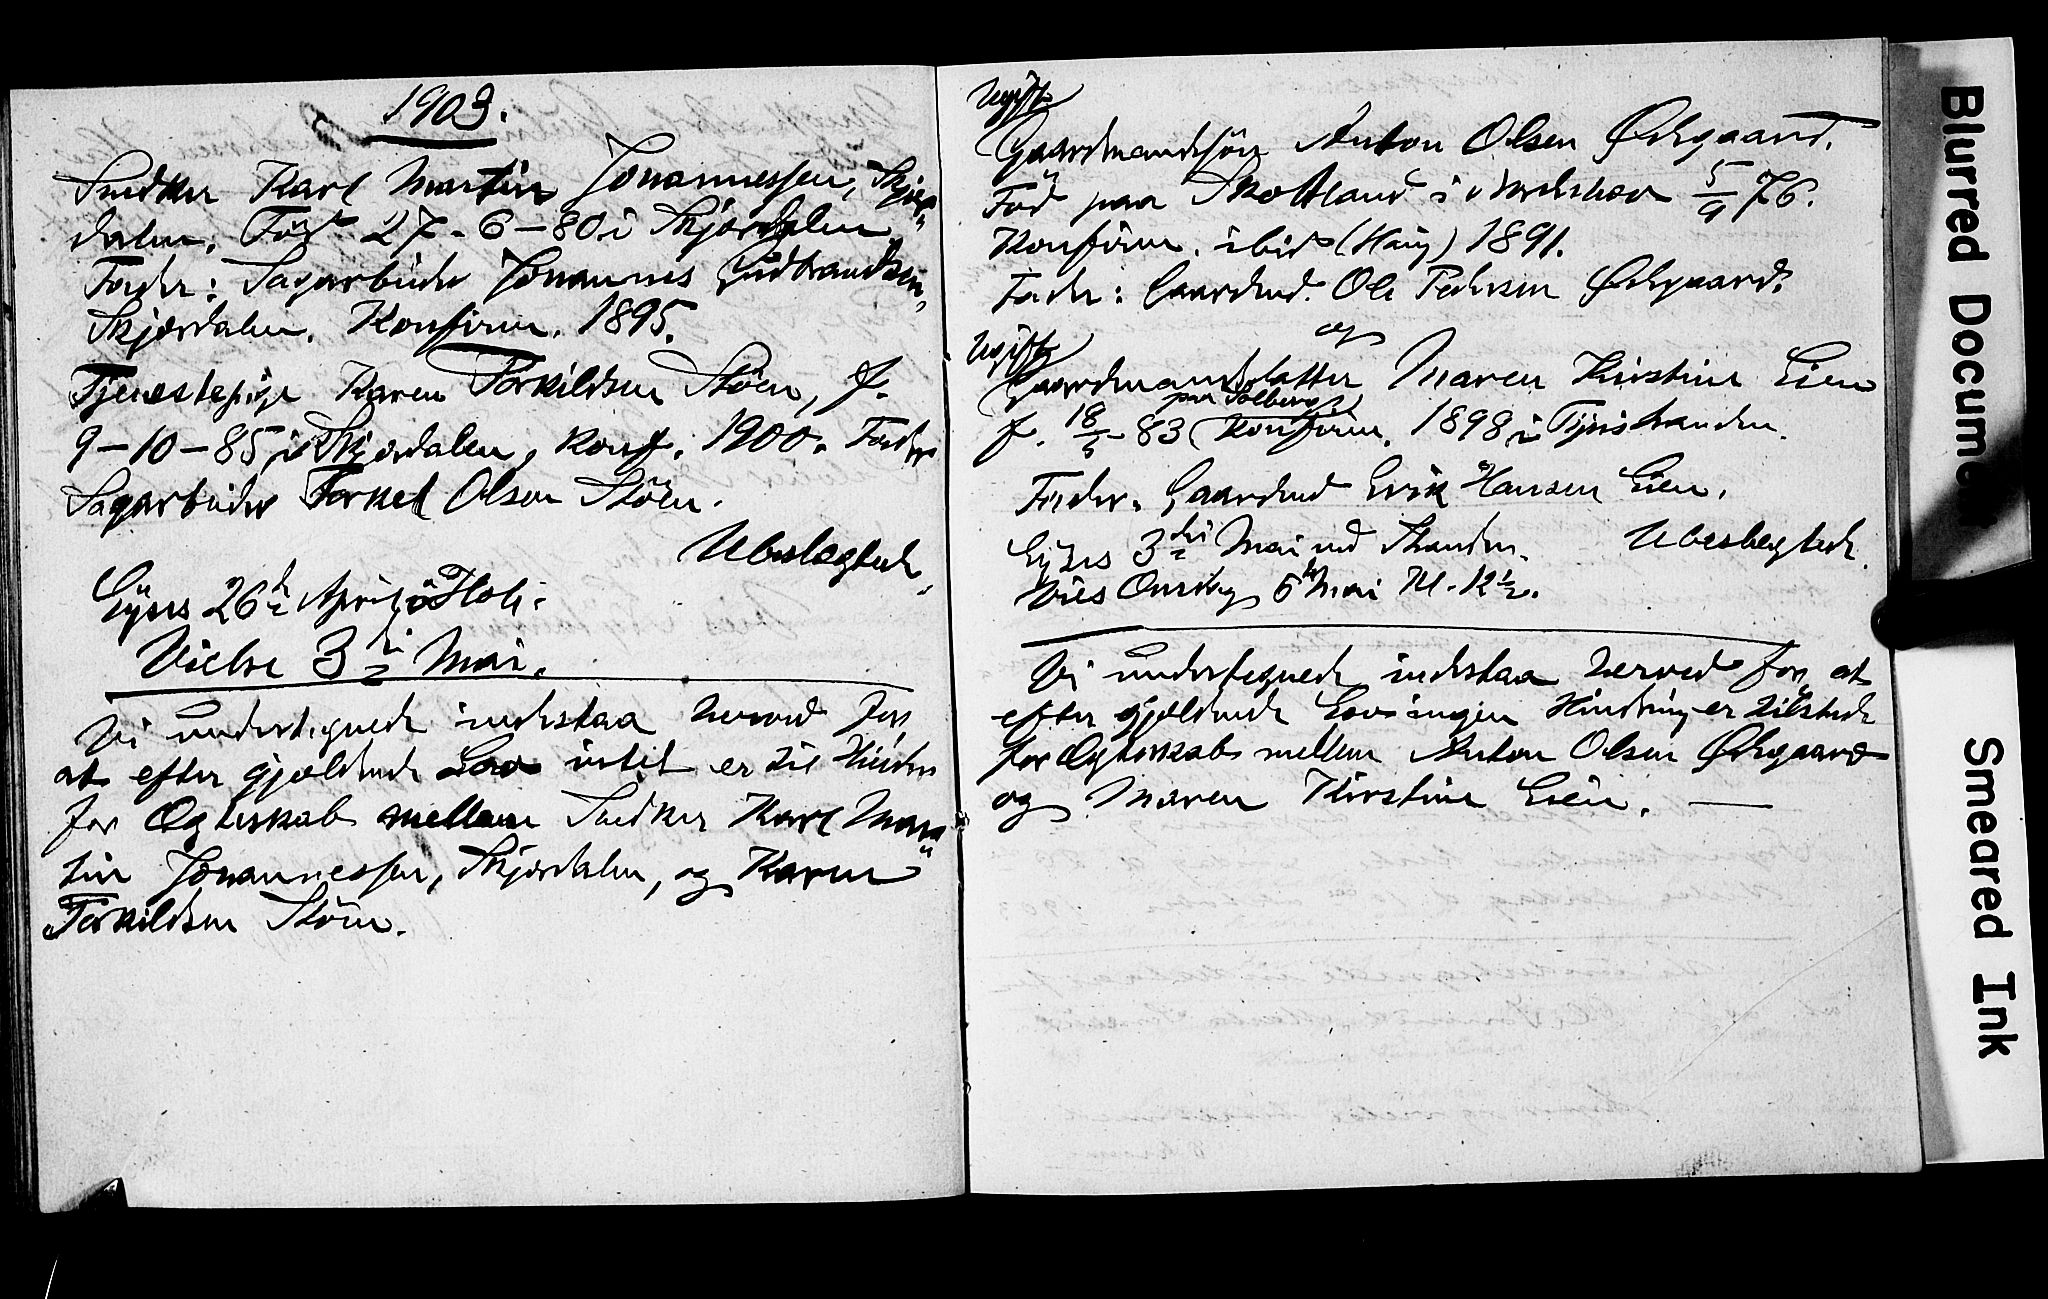 1903.
Snedker Karl Martin Johannessen, Skjær-
dalen. Föd 27-6-80 i Skjærdalen
Fader: Sagarbeider Johannes Gudbrandsen,
Skjærdalen. Konfirm. 1895.
Tjenestepige Karen Torkildsen Stöen, f.
9-10-85 i Skjærdalen, Konf. 1900. Fader
Sagarbeider Torkel Olsen Stöen.
Ubeslægtede.
Lyses 26de April i Hole.
Vielse 3die Mai.
Vi undertegnede indestaa herved for,
at efter gjældende Lov intet er til Hinder
for Ægteskab mellem Snedker Karl Mar-
tin Johannessen, Skjærdalen, og Karen
Torkildsen Stöen.
Ugift
Gaardmandssön Anton Olsen Ødegaard.
Föd paa Skotland i Norderhov 5/9 76.
Konfirm. ibid (Haug) 1891.
Fader: Gaardmd. Ole Pedersen Ødegaard.
og
Ugift
Gaardmandsdatter Maren Kirstine Eien
paa Solberg
f. 18/5 83 Konfirm. 1898 i Tyristranden.
Fader. Gaardmd Erik Hansen Eien.
Lyses 3die Mai ved Stranden. Ubeslegtede.
Vies Onsdag 6te Mai Kl. 12½.
Vi undertegnede indestaa herved for, at
efter gjældende Lov ingen Hindring er tilstede
for Ægteskab mellem Anton Olsen Ødegaard
og Maren Kirstine Eien.
Blurred Document
Smeared Ink